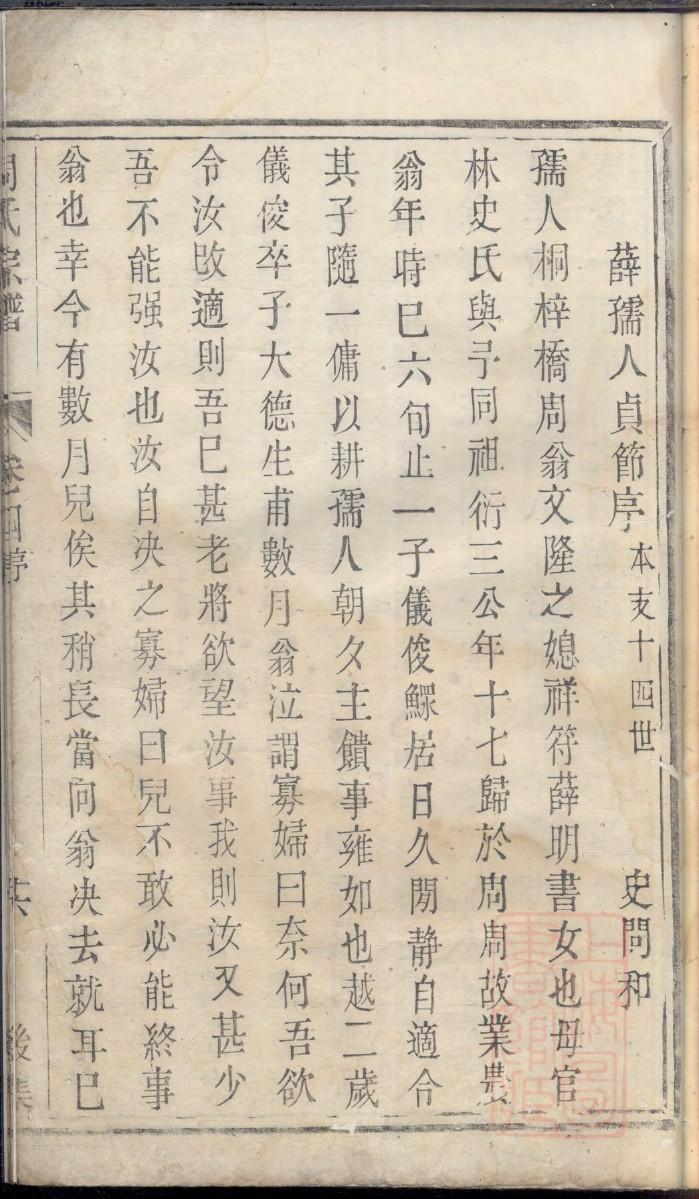 薛孺人貞節序 本支十四世 史問和
孺人桐梓橋周翁文隆之媳祥符薛明書女也母官
林史氏與予同祖衍三公年十七歸於周周故業農
翁年時巳六旬止一子儀俊鰥居日久閒静自適令
其子隨一傭以耕孺人朝夕主饋事雍如也越二歲
儀俊卒子大德生甫數月翁泣謂寡婦曰奈何吾欲
令汝改適則吾巳甚老將欲望汝事我則汝又甚少
吾不能强汝也汝自决之寡婦曰兒不敢必能終事
翁也幸今有數月兒俟其稍長當向翁决去就耳巳
周氏宗譜 卷四序